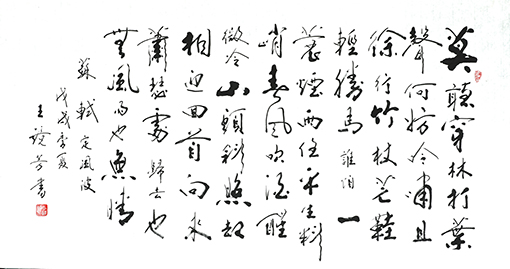 莫聽穿林打葉
聲何妨吟嘯且
徐行竹杖芒鞋
輕勝馬誰怕一
蓑煙雨任平生料
峭春風吹酒醒
微冷山頭斜照却
相迎回首向來
蕭瑟處歸去也
無風雨也無晴
蘇軾定風波
戊戌季夏
王芳書